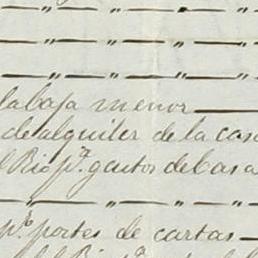 — „ — „ — „ — „ —
— „ — „ — „ — „ —
— „ — „ — „ — „ —
la baja menor —
de alquiler de la cas
l Rio p.ª gastos de Casa
— „ — „ — „ — „ —
p.r portes de cartas —